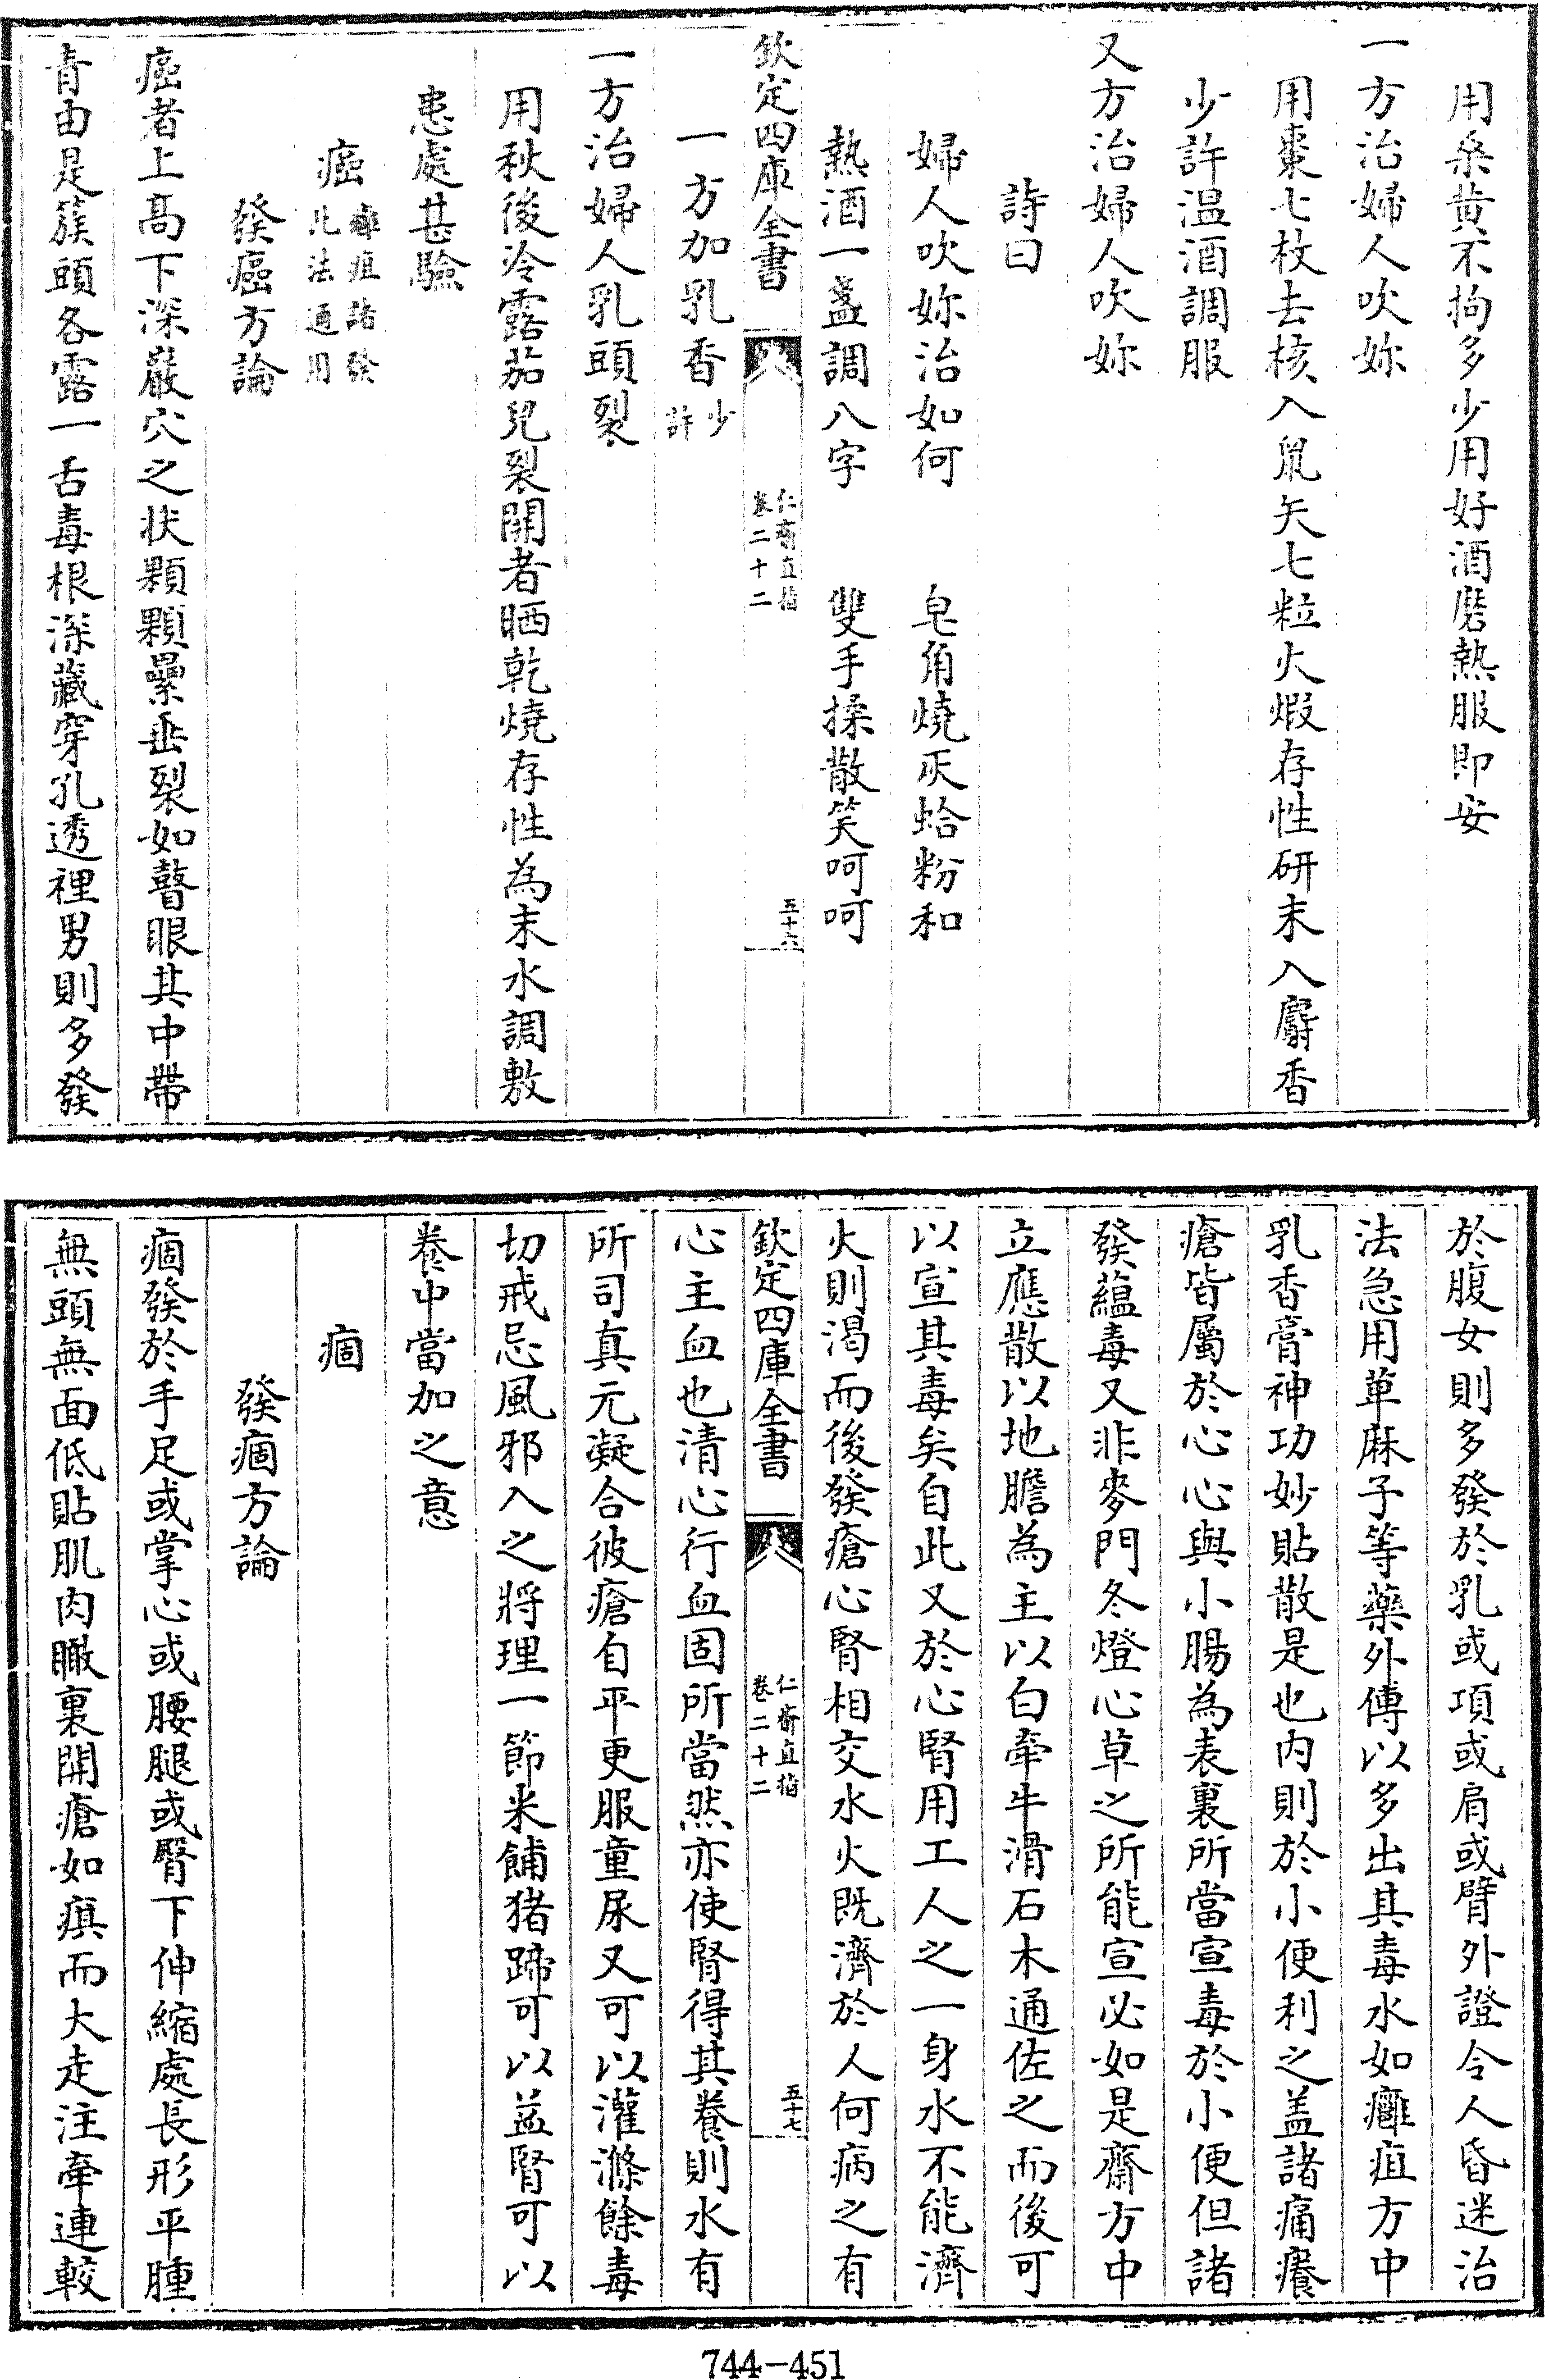 用桑黄不拘多少用好酒磨熱服即安
一方治婦人吹妳
用棗七枚去核入鼠矢七粒火煆存性研末入麝香
少許温酒調服
又方治婦人吹妳
詩曰
婦人吹妳治如何 皂角燒灰蛤粉和
熱酒一盞調八字 雙手揉散笑呵呵
欽定四庫全書 仁齋直指 卷二十二 五十六
一方加乳香少許
一方治婦人乳頭裂
用秋後冷露茄兒裂開者晒乾燒存性為末水調敷
患處甚驗
癌癰疽諸發此法通用
發癌方論
癌者上高下深巖穴之状顆顆壘垂裂如瞽眼其中帶
青由是簇頭各露一舌毒根深藏穿孔透裡男則多發
於腹女則多發於乳或項或肩或臂外證令人昏迷治
法急用萆麻子等藥外傅以多出其毒水如癰疽方中
乳香膏神功妙貼散是也内則於小便利之盖諸痛癢
瘡皆屬於心心與小腸為表裏所當宣毒於小便但諸
發藴毒又非麥門冬燈心草之所能宣必如是齋方中
立應散以地膽為主以白牽牛滑石木通佐之而後可
以宣其毒矣自此又於心腎用工人之一身水不能濟
火則渴而後發瘡心腎相交水火既濟於人何病之有
欽定四庫全書 仁齋直指 卷二十二 五十七
心主血也清心行血固所當然亦使腎得其養則水有
所司真元凝合彼瘡自平更服童尿又可以灌滌餘毒
切戒忌風邪入之將理一節米餔猪蹄可以益腎可以
養中當加之意
痼
發痼方論
痼發於手足或掌心或腰腿或臀下伸縮處長形平腫
無頭無面低貼肌肉瞰裏開瘡如瘨而大走注牽連較
744-451